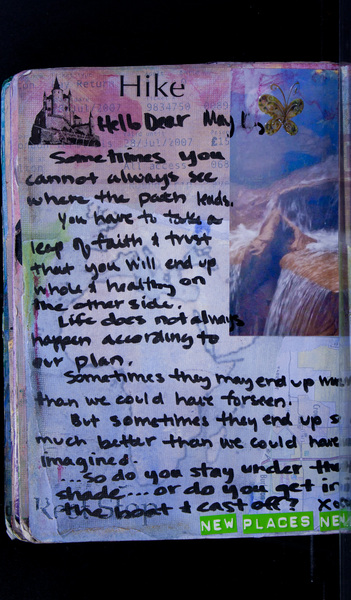 Hike
Hello Dear May
Sometimes you
cannot always see
where the path leads.
You have to take a
leap of faith & trust
that you will end up
whole & healthy on
the other side.
Life does not always
happen according to
our plan.
Sometimes they may end up
than we could have forseen.
But sometimes they end up s
much better than we could have
imagined.
...so do you stay under the
shade.... or do you get in
the boat & cast off? xo
NEW PLACES NEW